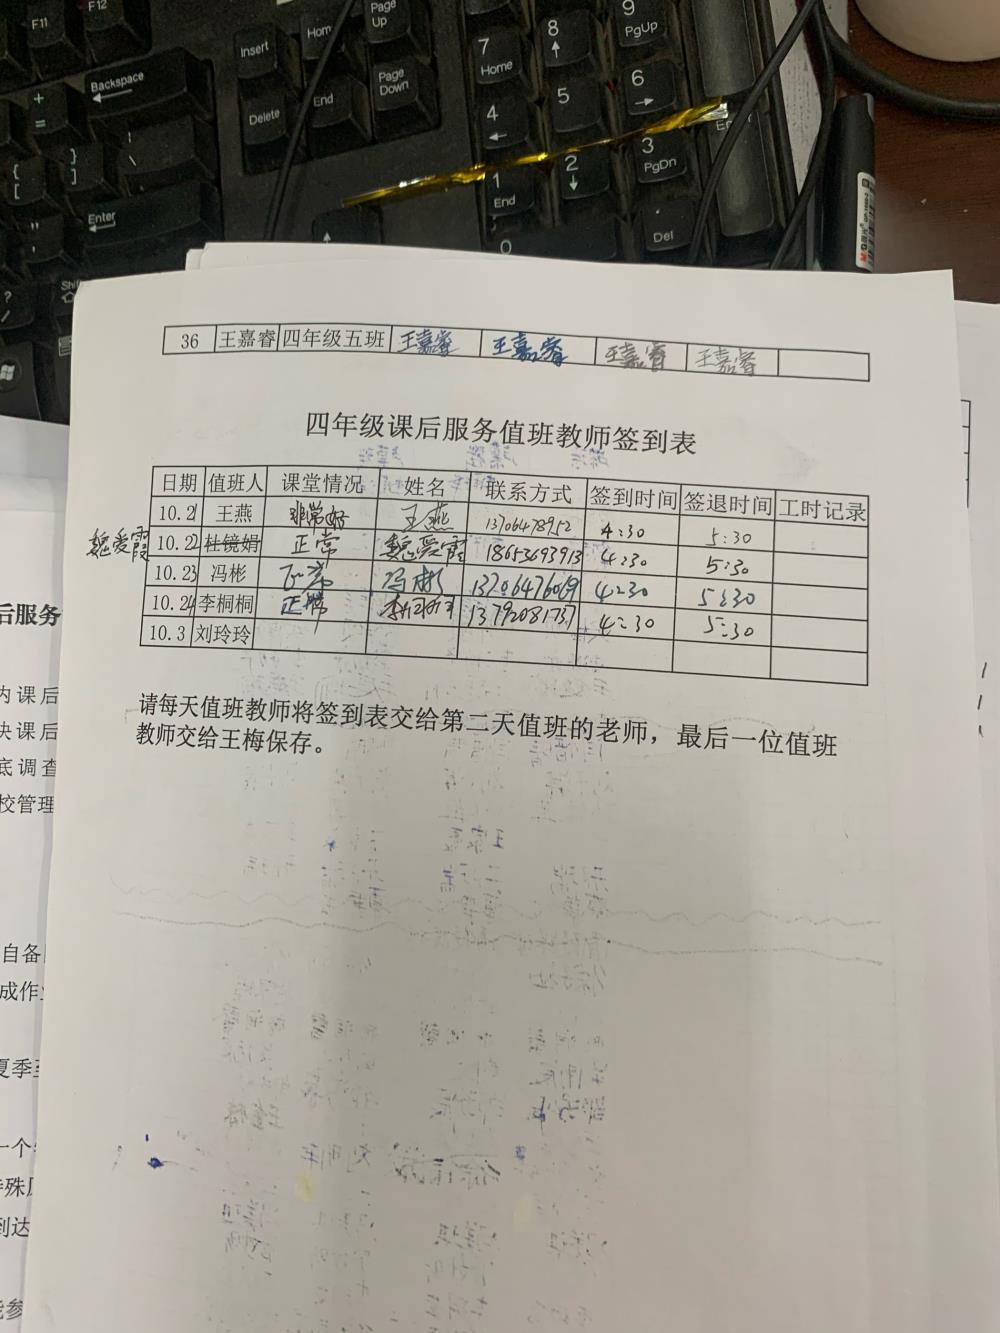 F11
F12
Backspace
+
=
Insert
Hom
Page Up
7 Home
8
9 PgUp
Delete
End
Page Down
4
5
6
}
]
{
[
|
\
Enter
1 End
2
3 PgDn
0
Del
"
'
?
/
36 王嘉睿 四年级五班 王嘉睿 王嘉睿 王嘉睿 王嘉睿
四年级课后服务值班教师签到表
日期 值班人 课堂情况 姓名 联系方式 签到时间 签退时间 工时记录
10.21 王燕 非常好 王燕 13706478952 4:30 5:30
魏爱霞 10.22 杜镜娟 正常 魏爱霞 18653693913 4:30 5:30
10.23 冯彬 正常 冯彬 13706476069 4:30 5:30
10.24 李桐桐 正常 李桐桐 13792081737 4:30 5:30
10.3 刘玲玲
请每天值班教师将签到表交给第二天值班的老师，最后一位值班
教师交给王梅保存。
后服务
内课后
快课后
底调查
校管理
自备
成作业
夏季
一个
特殊
到达
参